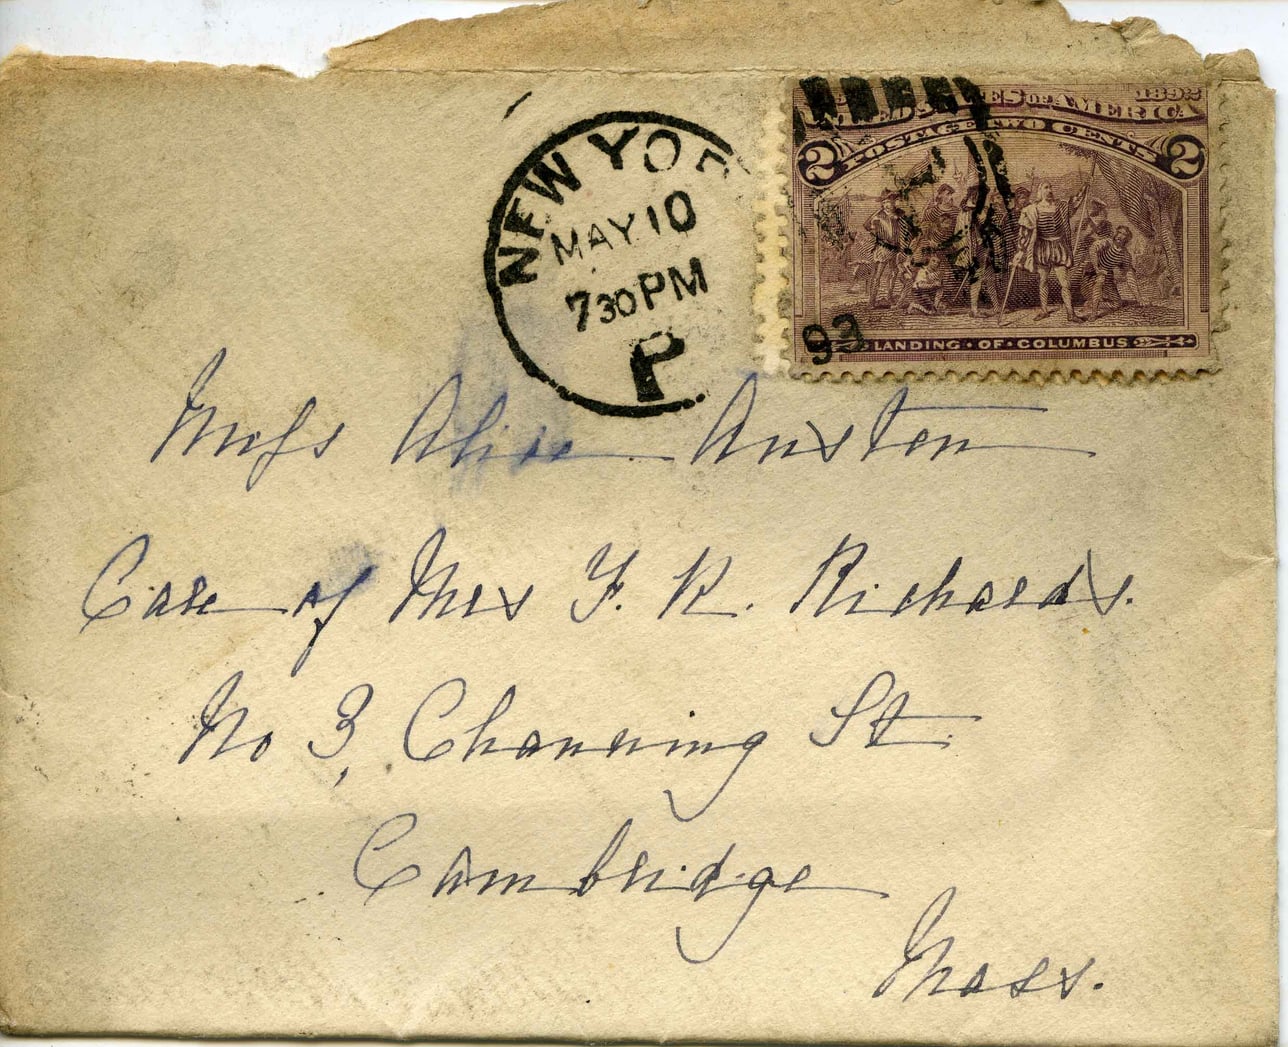 NEW YOR
MAY 10
730 PM
P
93
UNITED STATES OF AMERICA 1892
POSTAGE TWO CENTS
2 2
LANDING · OF · COLUMBUS
Miss Alice Austen
Care of Mrs F. R. Richards.
No 3, Channing St.
Cambridge
Mass.